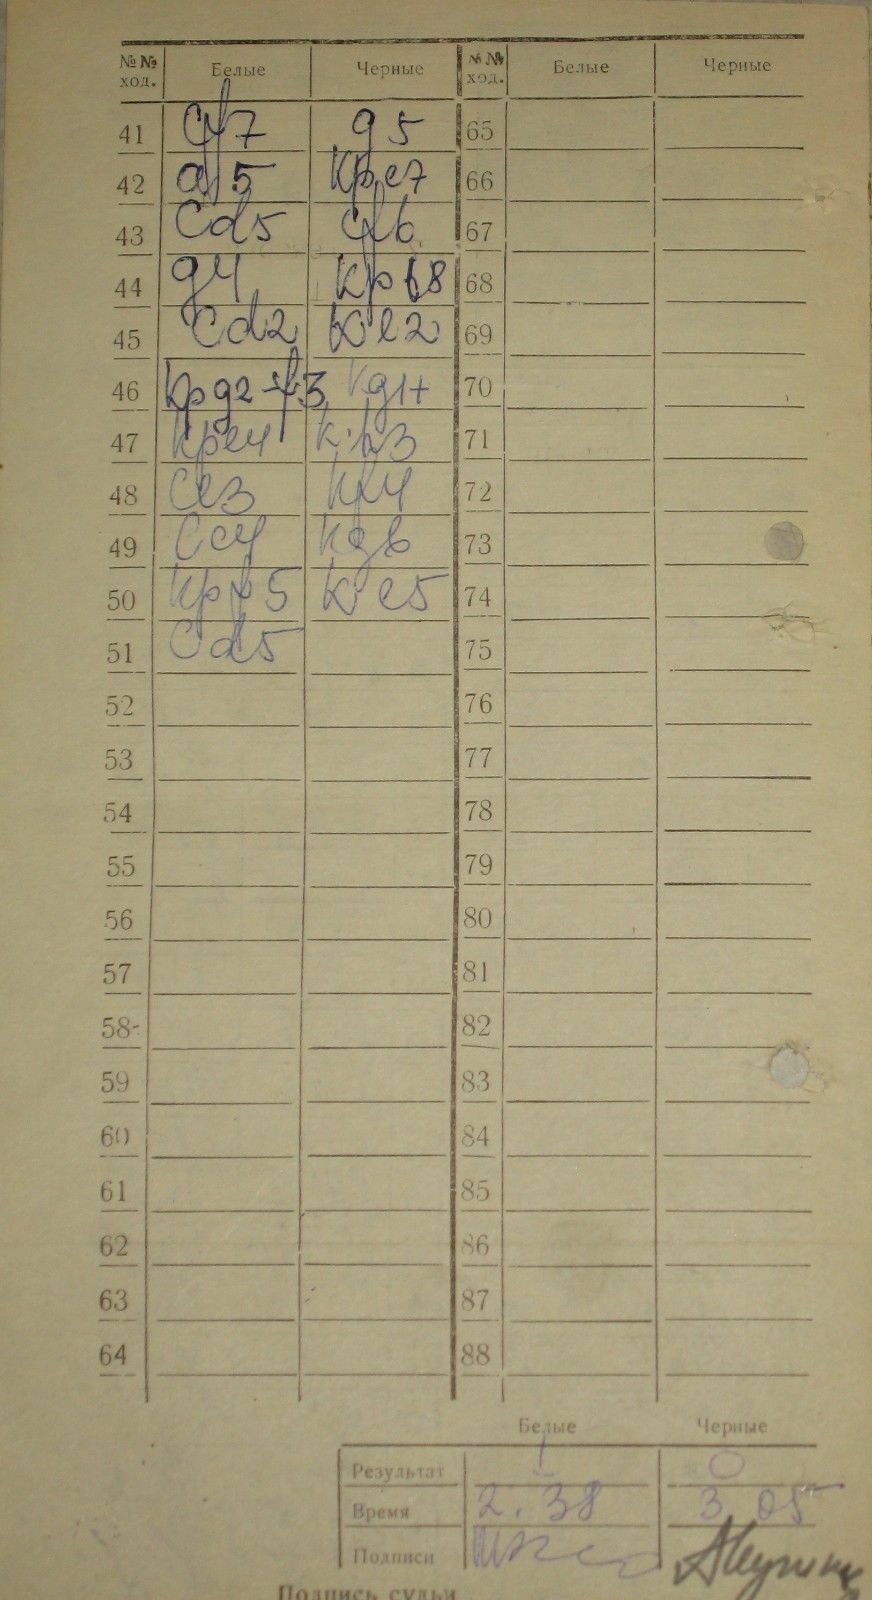 №№ ход. Белые Черные №№ ход. Белые Черные
41 Cf7 g5 65
42 a5 Kpe7 66
43 Cd5 Cf6 67
44 g4 Kpf8 68
45 Cd2 Ke2 69
46 Kpg2-f3 Kg1+ 70
47 Kpe4 K:h3 71
48 Ce3 Kf4 72
49 Cc4 Kg6 73
50 Kpf5 Ke5 74
51 Cd5 75
52 76
53 77
54 78
55 79
56 80
57 81
58 82
59 83
60 84
61 85
62 86
63 87
64 88
Белые Черные
Результат 1 0
Время 2.38 3.05
Подписи
Подпись судьи